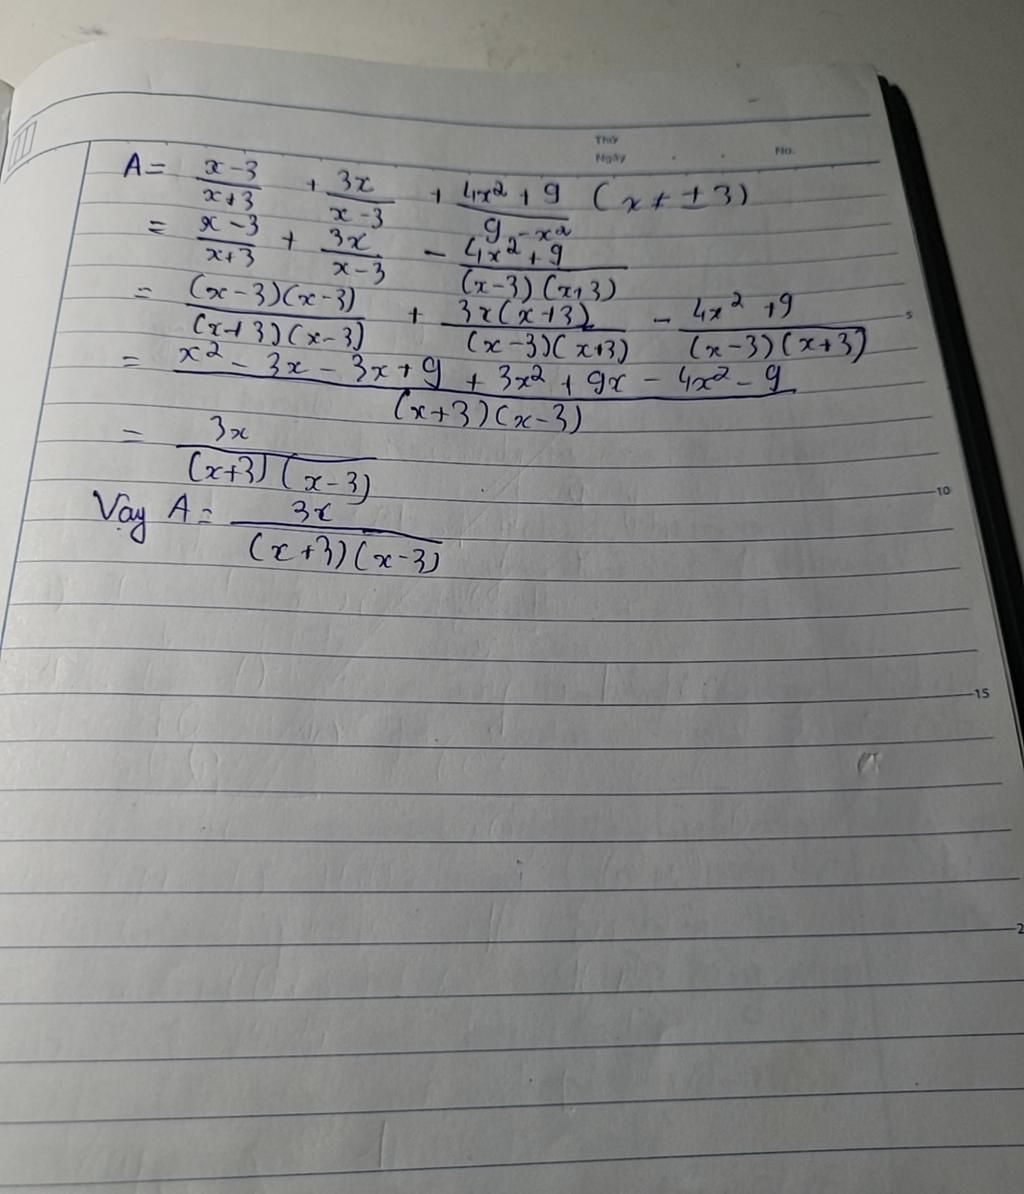 Thứ
Ngày . . No.
A = \frac{x-3}{x+3} + \frac{3x}{x-3} + \frac{4x^2+9}{9-x^2} (x ≠ ±3)
= \frac{x-3}{x+3} + \frac{3x}{x-3} - \frac{4x^2+9}{(x-3)(x+3)}
= \frac{(x-3)(x-3)}{(x+3)(x-3)} + \frac{3x(x+3)}{(x-3)(x+3)} - \frac{4x^2+9}{(x-3)(x+3)}
5
= \frac{x^2-3x-3x+9+3x^2+9x-4x^2-9}{(x+3)(x-3)}
= \frac{3x}{(x+3)(x-3)}
10
Vậy A = \frac{3x}{(x+3)(x-3)}
15
2